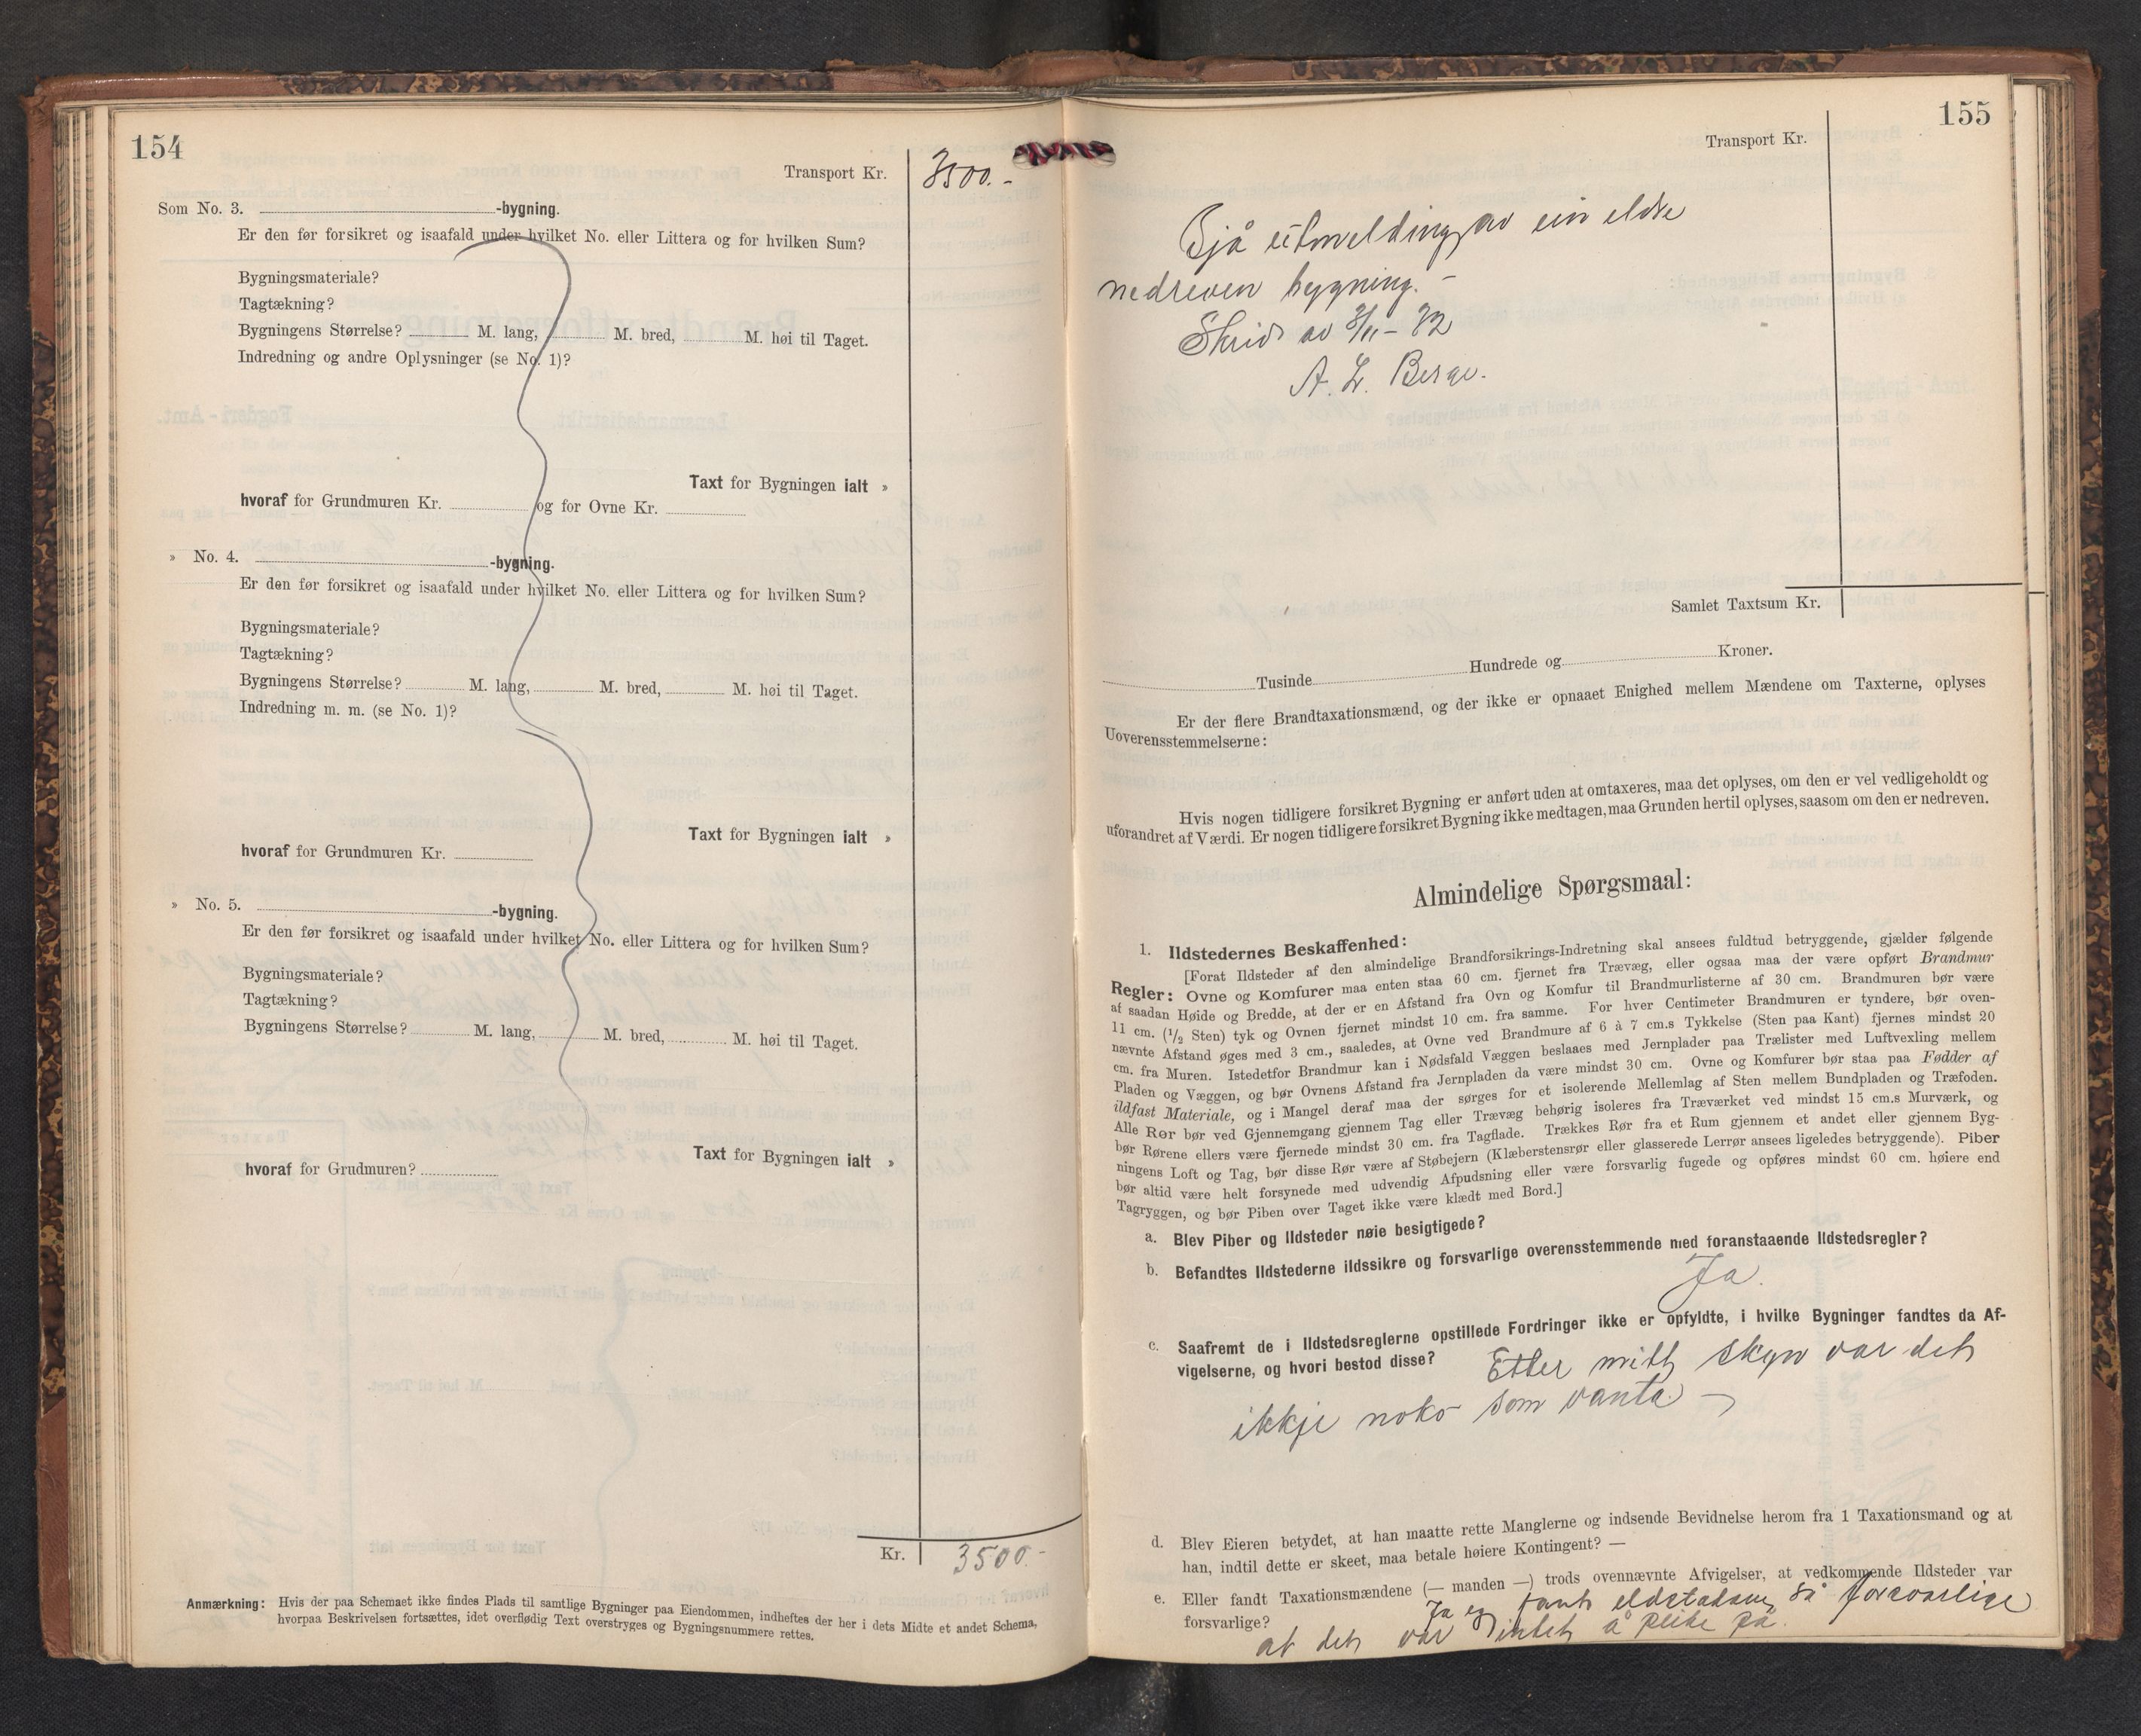 154
Transport Kr. 3500.-
Som No. 3. -bygning.
Er den før forsikret og isaafald under hvilket No. eller Littera og for hvilken Sum?
Bygningsmateriale?
Tagtækning?
Bygningens Størrelse? M. lang, M. bred, M. høi til Taget.
Indredning og andre Oplysninger (se No. 1)?
Taxt for Bygningen ialt »
hvoraf for Grundmuren Kr. og for Ovne Kr.
» No. 4. -bygning.
Er den før forsikret og isaafald under hvilket No. eller Littera og for hvilken Sum?
Bygningsmateriale?
Tagtækning?
Bygningens Størrelse? M. lang, M. bred, M. høi til Taget.
Indredning m. m. (se No. 1)?
Taxt for Bygningen ialt »
hvoraf for Grundmuren Kr.
» No. 5. -bygning.
Er den før forsikret og isaafald under hvilket No. eller Littera og for hvilken Sum?
Bygningsmateriale?
Tagtækning?
Bygningens Størrelse? M. lang, M. bred, M. høi til Taget.
Taxt for Bygningen ialt »
hvoraf for Grudmuren?
Kr. 3500.-
Anmærkning: Hvis der paa Schemaet ikke findes Plads til samtlige Bygninger paa Eiendommen, indheftes der her i dets Midte et andet Schema,
hvorpaa Beskrivelsen fortsættes, idet overflødig Text overstryges og Bygningsnummere rettes.
155
Transport Kr.
Sjå utmelding av ein eldre
nedreven bygning. -
Skriv av 3/11 - 32
A. L. Berge.
Samlet Taxtsum Kr.
Tusinde Hundrede og Kroner.
Er der flere Brandtaxationsmænd, og der ikke er opnaaet Enighed mellem Mændene om Taxterne, oplyses
Uoverensstemmelserne:
Hvis nogen tidligere forsikret Bygning er anført uden at omtaxeres, maa det oplyses, om den er vel vedligeholdt og
uforandret af Værdi. Er nogen tidligere forsikret Bygning ikke medtagen, maa Grunden hertil oplyses, saasom om den er nedreven.
Almindelige Spørgsmaal:
1. Ildstedernes Beskaffenhed:
[Forat Ildsteder af den almindelige Brandforsikrings-Indretning skal ansees fuldtud betryggende, gjælder følgende
Regler: Ovne og Komfurer maa enten staa 60 cm. fjernet fra Trævæg, eller ogsaa maa der være opført Brandmur
af saadan Høide og Bredde, at der er en Afstand fra Ovn og Komfur til Brandmurlisterne af 30 cm. Brandmuren bør være
11 cm. (1/2 Sten) tyk og Ovnen fjernet mindst 10 cm. fra samme. For hver Centimeter Brandmuren er tyndere, bør oven-
nævnte Afstand øges med 3 cm., saaledes, at Ovne ved Brandmure af 6 à 7 cm.s Tykkelse (Sten paa Kant) fjernes mindst 20
cm. fra Muren. Istedetfor Brandmur kan i Nødsfald Væggen beslaaes med Jernplader paa Trælister med Luftvexling mellem
Pladen og Væggen, og bør Ovnens Afstand fra Jernpladen da være mindst 30 cm. Ovne og Komfurer bør staa paa Fødder af
ildfast Materiale, og i Mangel deraf maa der sørges for et isolerende Mellemlag af Sten mellem Bundpladen og Træfoden.
Alle Rør bør ved Gjennemgang gjennem Tag eller Trævæg behørig isoleres fra Træværket ved mindst 15 cm.s Murværk, og
bør Rørene ellers være fjernede mindst 30 cm. fra Tagflade. Trækkes Rør fra et Rum gjennem et andet eller gjennem Byg-
ningens Loft og Tag, bør disse Rør være af Støbejern (Klæberstensrør eller glasserede Lerrør ansees ligeledes betryggende). Piber
bør altid være helt forsynede med udvendig Afpudsning eller være forsvarlig fugede og opføres mindst 60 cm. høiere end
Tagryggen, og bør Piben over Taget ikke være klædt med Bord.]
a. Blev Piber og Ildsteder nøie besigtigede?
b. Befandtes Ildstederne ildssikre og forsvarlige overensstemmende med foranstaaende Ildstedsregler?
Ja.
c. Saafremt de i Ildstedsreglerne opstillede Fordringer ikke er opfyldte, i hvilke Bygninger fandtes da Af-
vigelserne, og hvori bestod disse? Etter mitt skyn var det
ikkje noko som vanta -
d. Blev Eieren betydet, at han maatte rette Manglerne og indsende Bevidnelse herom fra 1 Taxationsmand og at
han, indtil dette er skeet, maa betale høiere Kontingent? —
e. Eller fandt Taxationsmændene (— manden —) trods ovennævnte Afvigelser, at vedkommende Ildsteder var
forsvarlige? Ja eg fant eldstadane så forsvarlige
at det var intet å peike på.